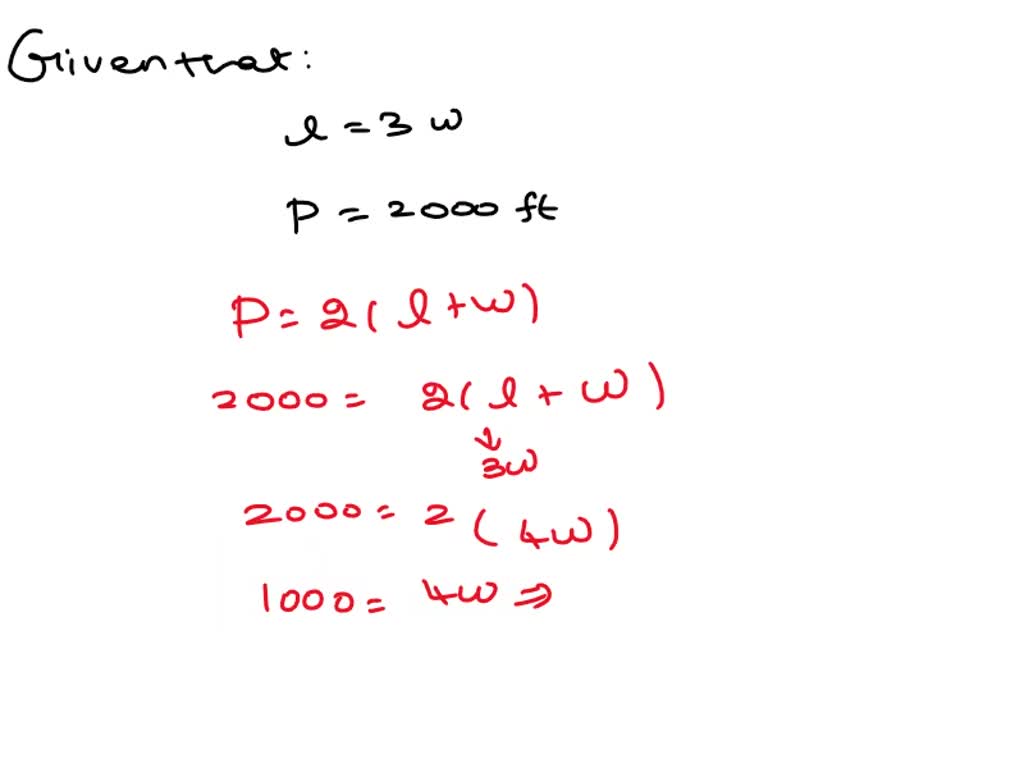 Given that:
l = 3 w
P = 2000 ft
P = 2( l + w)
2000 = 2( l + w )
↓
3w
2000 = 2 ( 4w )
1000 = 4w ⇒